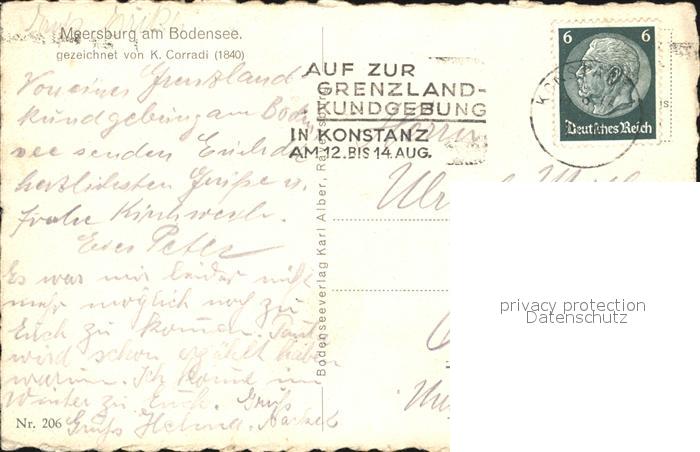 Meersburg am Bodensee.
gezeichnet von K. Corradi (1840)
Von einer Grenzland
kundgebung am Boden
see senden Euch die
herzlichsten Grüße u.
frohe Kirchweih.
Euer Peter
Es war mir leider nicht
mehr möglich noch zu
Euch zu kommen.
wird schon erzählt haben
warum. Ich komme im
Winter zu Euch. Gruß
Gruß Helmut
Nr. 206
Bodenseeverlag Karl Alber,
AUF ZUR
GRENZLAND-
KUNDGEBUNG
IN KONSTANZ
AM 12. BIS 14 AUG.
6 6
Deutsches Reich
Herrn
privacy protection
Datenschutz